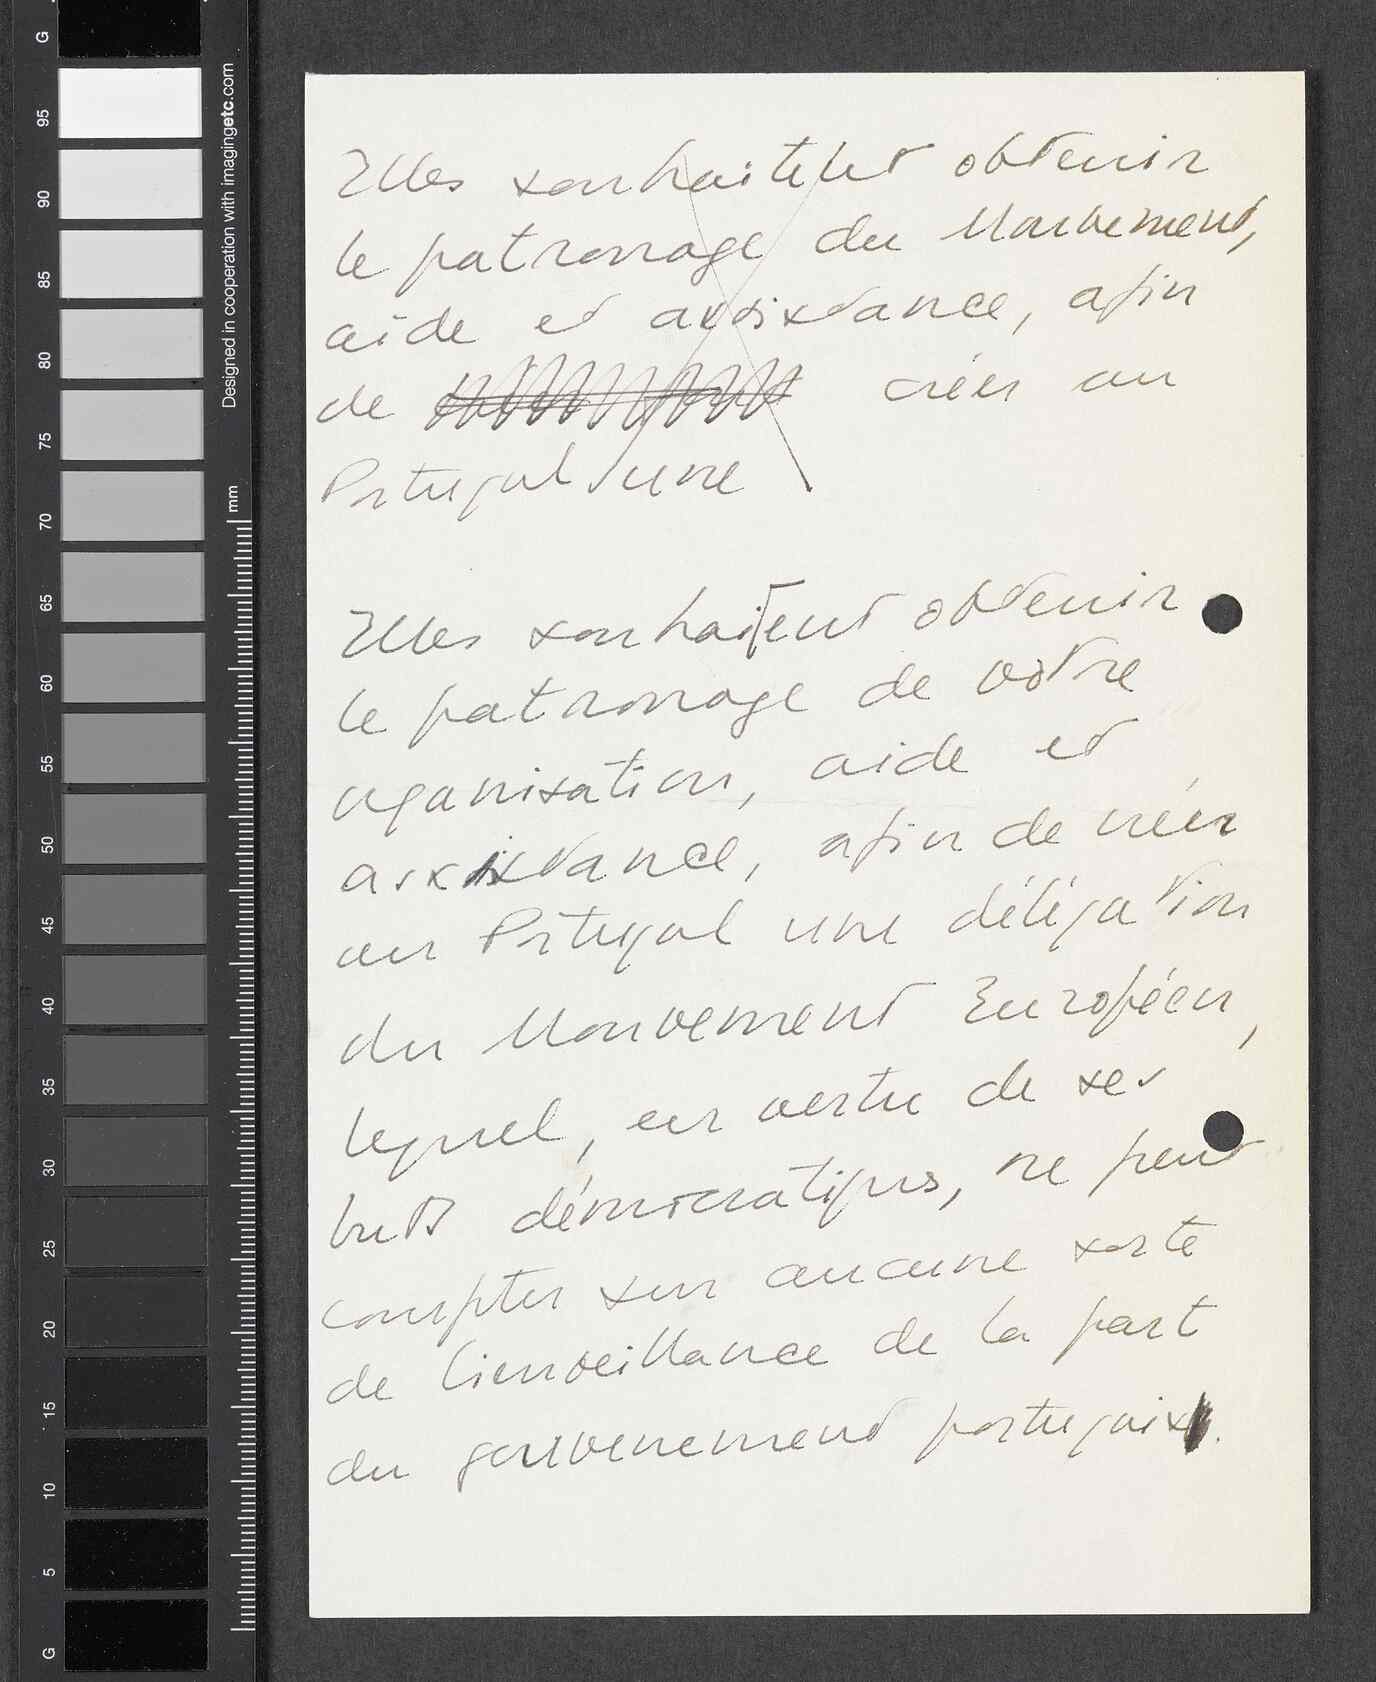 Elles souhaitent obtenir
le patronage du Mouvement,
aide et assistance, afin
de créer au
Portugal une
Elles souhaitent obtenir
le patronage de votre
organisation, aide et
assistance, afin de créer
au Portugal une délégation
du Mouvement Européen,
lequel, en vertu de ses
buts démocratiques, ne peut
compter sur aucune sorte
de bienveillance de la part
du gouvernement portugais.
Designed in cooperation with imagingetc.com
mm
G
95
90
85
80
75
70
65
60
55
50
45
40
35
30
25
20
15
10
5
G